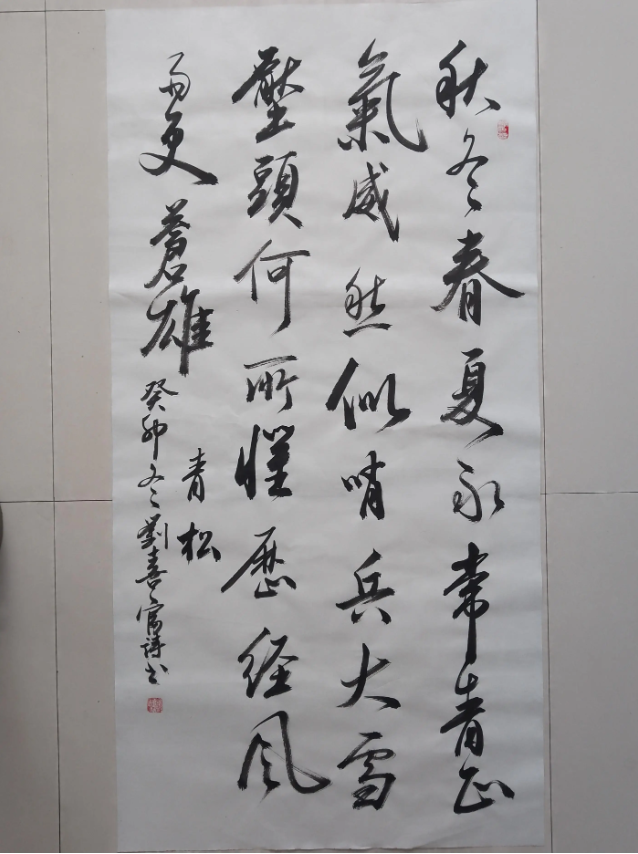 秋冬春夏永常青正
氣威然似哨兵大雪
壓頭何所懼歷经风
雨更蒼雄
青松
癸卯冬劉喜宦詩书